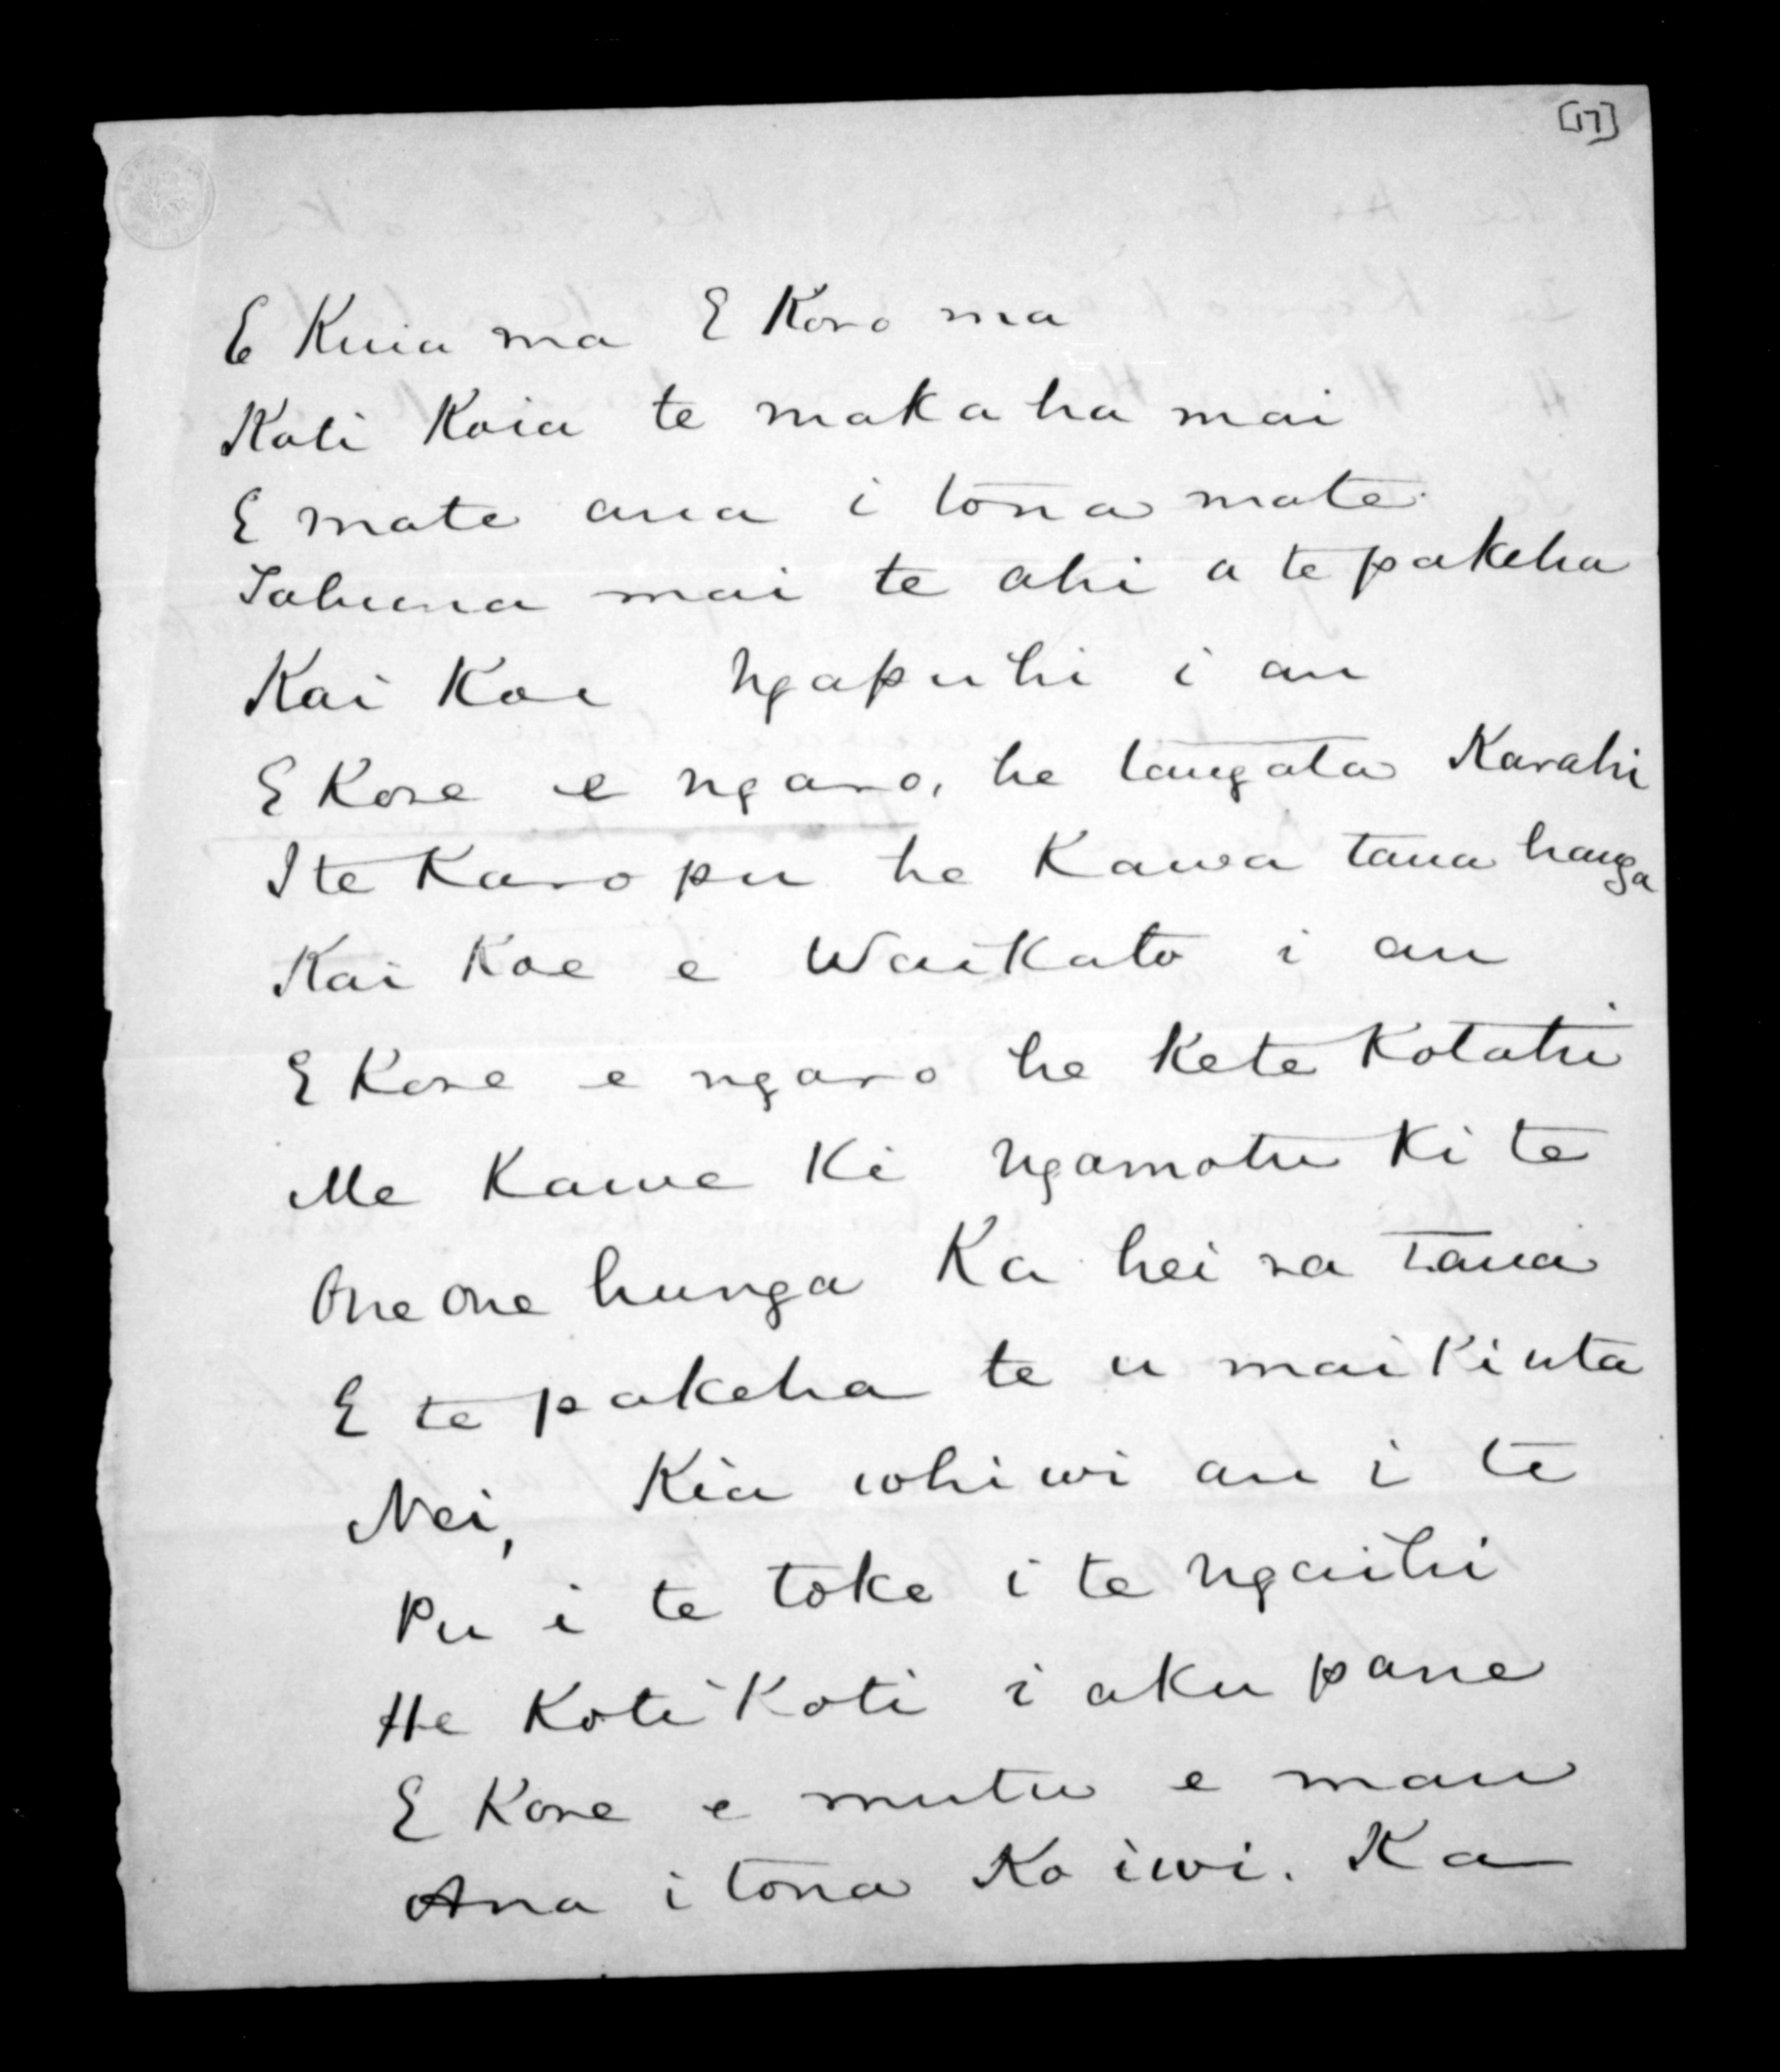 [17]
E Kuia ma E Koro ma
Kati Koia te makaha mai
E mate ana i tona mate
Tahuna mai te ahi a te pakeha
Kai Koe Ngapuhi i au
E Kore e ngaro, he tangata Karahi
I te Karo pu he Kawa tana hanga
Kai Koe e Waikato i au
E Kore e ngaro he Kete Kotutu
Me Kawe Ki Ngamotu Ki te
One one hunga Ka hei ra taua
E te pakeha te u mai Ki uta
Nei, Kia whiwhi au i te
Pu i te toke i te ngaihi
He Koti Koti i aku pane
E Kore e mutu e mau
Ana i tona Ko iwi. Ka